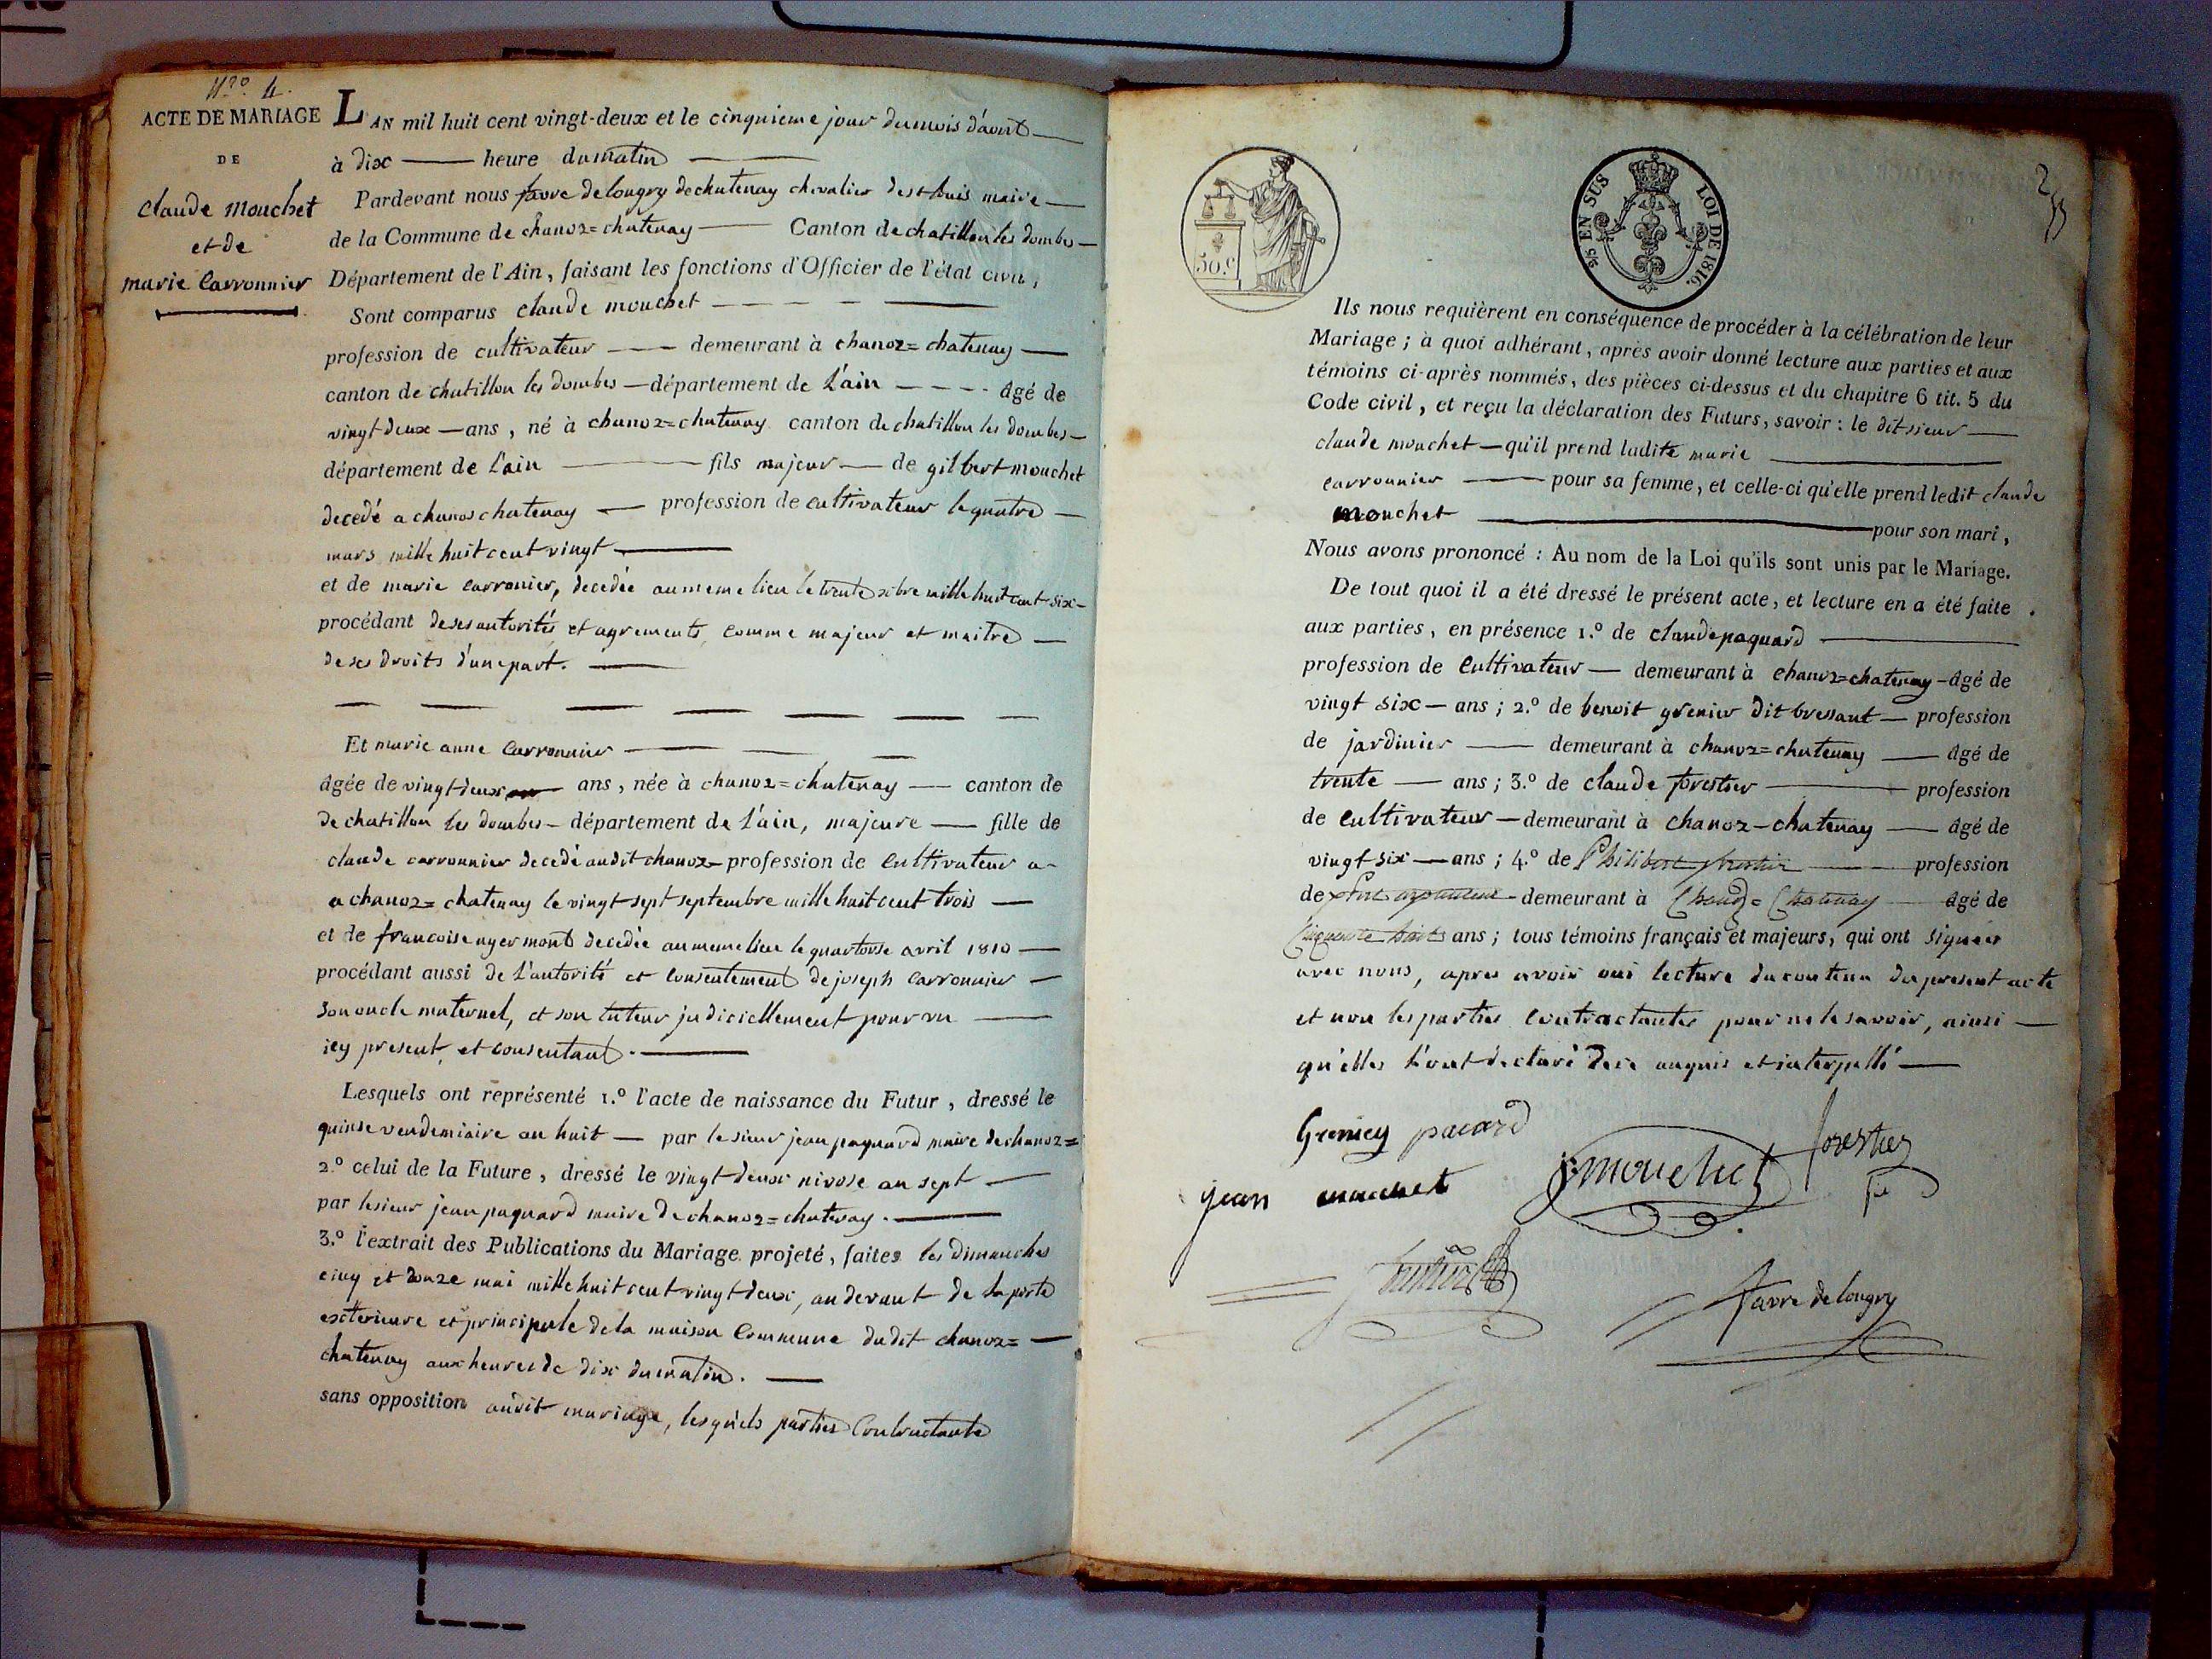 N.ro 4.
ACTE DE MARIAGE
DE
claude mouchet
et de
marie Carronnier
LAN mil huit cent vingt-deux et le cinquieme jour du mois d'aout
à dix heure du matin
Pardevant nous favre delongry de chatenay chevalier de st louis maire
de la Commune de chanoz=chatenay Canton de chatillon les dombes
Département de l'Ain, faisant les fonctions d'Officier de l'état civil,
Sont comparus claude mouchet
profession de cultivateur demeurant à chanoz=chatenay
canton de chatillon les dombes département de l'ain âgé de
vingt deux ans, né à chanoz=chatenay canton de chatillon les dombes
département de l'ain fils majeur de gilbert mouchet
decedé a chanos chatenay profession de cultivateur le quatre
mars mille huit cent vingt
et de marie carronier, decedée au meme lieu le trente xbre mille huit cent six
procédant de ses autorités et agrements, comme majeur et maitre
de ses droits d'une part.
Et marie anne Carronnier
âgée de vingt deux ans, née à chanoz=chatenay canton de
de chatillon les dombes département de l'ain, majeure fille de
claude carronnier decedé audit chanoz= profession de cultivateur a
a chanoz=chatenay le vingt sept septembre mille huit cent trois
et de francoise uyermont decedée au meme lieu le quartorse avril 1810
procédant aussi de l'autorité et consentement de joseph carronnier
son oncle maternel, et son tuteur judiciellement pourvu
icy present, et consentant.
Lesquels ont représenté 1.º l'acte de naissance du Futur, dressé le
quinse vendemiaire an huit par le sieur jean paquard maire de chanoz=
2.º celui de la Future, dressé le vingt deux nivose an sept
par le sieur jean paquard maire de chanoz=chatenay.
3.º l'extrait des Publications du Mariage projeté, faites les dimanches
cinq et douze mai mille huit cent vingt deux, au devant de la porte
exterieure et principale de la maison Commune dudit chanoz=
chatenay aux heures de dix du matin.
sans opposition audit mariage, lesquels parties Contractante
50.c
25 EN SUS LOI DE 1816.
Ils nous requièrent en conséquence de procéder à la célébration de leur
Mariage; à quoi adhérant, après avoir donné lecture aux parties et aux
témoins ci-après nommés, des pièces ci-dessus et du chapitre 6 tit. 5 du
Code civil, et reçu la déclaration des Futurs, savoir: le dit sieur
claude mouchet qu'il prend ladite marie
carronnier pour sa femme, et celle-ci qu'elle prend ledit claude
mouchet pour son mari,
Nous avons prononcé: Au nom de la Loi qu'ils sont unis par le Mariage.
De tout quoi il a été dressé le présent acte, et lecture en a été faite
aux parties, en présence 1.º de claude paquard
profession de Cultivateur demeurant à chanoz=chatenay âgé de
vingt six ans; 2.º de benoit grenier dit bressant profession
de jardinier demeurant à chanoz=chatenay âgé de
trente ans; 3.º de claude forestier profession
de cultivateur demeurant à chanoz-chatenay âgé de
vingt six ans; 4.º de Philibert forestier profession
de demeurant à Chanoz=Chatenay âgé de
Cinquante huit ans; tous témoins français et majeurs, qui ont signés
avec nous, apres avoir oui lecture du contenu du present acte
et non les parties contractantes pour ne le savoir, ainsi
qu'elles l'ont declaré de ce enquis et interpellé
Greniey pacard
forestier
jean mouchet
jmouchet
favre delongry